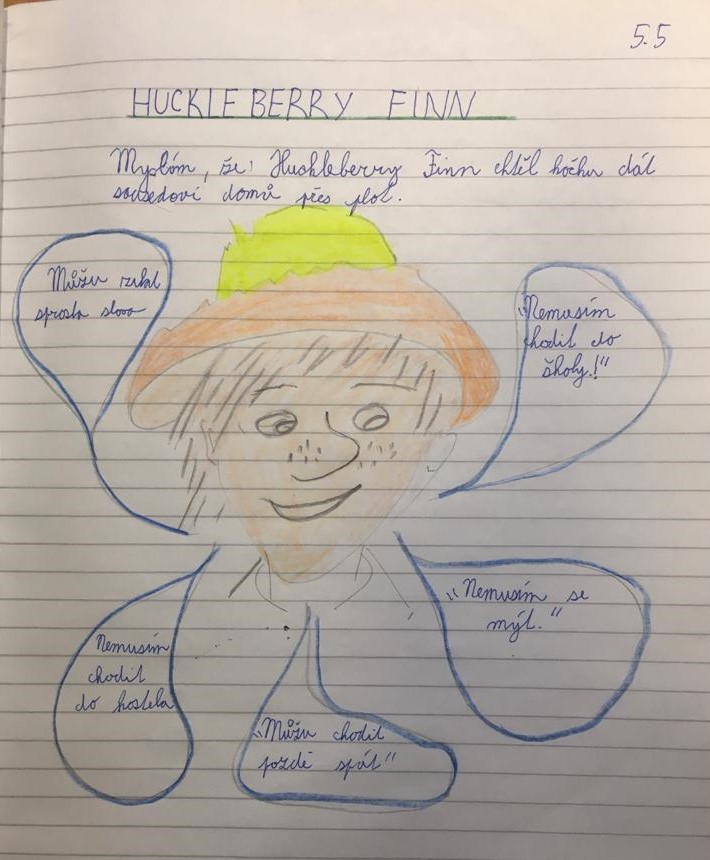 5.5
HUCKLEBERRY FINN
Myslím, že Huckleberry Finn chtěl kočku dát
sousedovi domů přes plot.
Můžu říkat
sprostа slova
„Nemusím
chodit do
školy!“
„Nemusím se
mýt.“
Nemusím
chodit
do kostela
„Můžu chodit
pozdě spát“